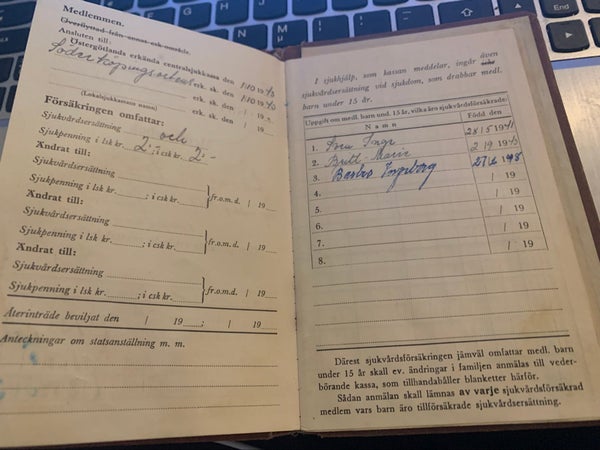 Medlemmen.
Överflyttad från annat csk-område.
Ansluten till:
Östergötlands erkända centralsjukkassa den 1/10 19
Söderköpingsortens erk. sk. den 1/10 19
erk. sk. den / 19
(Lokalsjukkassans namn)
Försäkringen omfattar:
Sjukvårdsersättning och
Sjukpenning i lsk kr. 2:-; i csk kr. 2:-
Ändrat till:
Sjukvårdsersättning
Sjukpenning i lsk kr. ; i csk kr. fr.o.m.d. / 19
Ändrat till:
Sjukvårdsersättning
Sjukpenning i lsk kr. ; i csk kr. fr.o.m.d. / 19
Ändrat till:
Sjukvårdsersättning
Sjukpenning i lsk kr. ; i csk kr. fr.o.m.d. / 19
Återinträde beviljat den / 19 ; / 19
Anteckningar om statsanställning m. m.
I sjukhjälp, som kassan meddelar, ingår även
sjukvårdsersättning vid sjukdom, som drabbar medl.
barn under 15 år.
Uppgift om medl. barn und. 15 år, vilka äro sjukvårdsförsäkrade:
Namn Född den
1. Inge 28/5 19
2. Britt-Marie 2/9 19
3. Ingeborg 27
4. / 19
5. / 19
6. / 19
7. / 19
8. / 19
Därest sjukvårdsförsäkringen jämväl omfattar medl. barn
under 15 år skall ev. ändringar i familjen anmälas till veder-
börande kassa, som tillhandahåller blanketter härför.
Sådan anmälan skall lämnas av varje sjukvårdsförsäkrad
medlem vars barn äro tillförsäkrade sjukvårdsersättning.